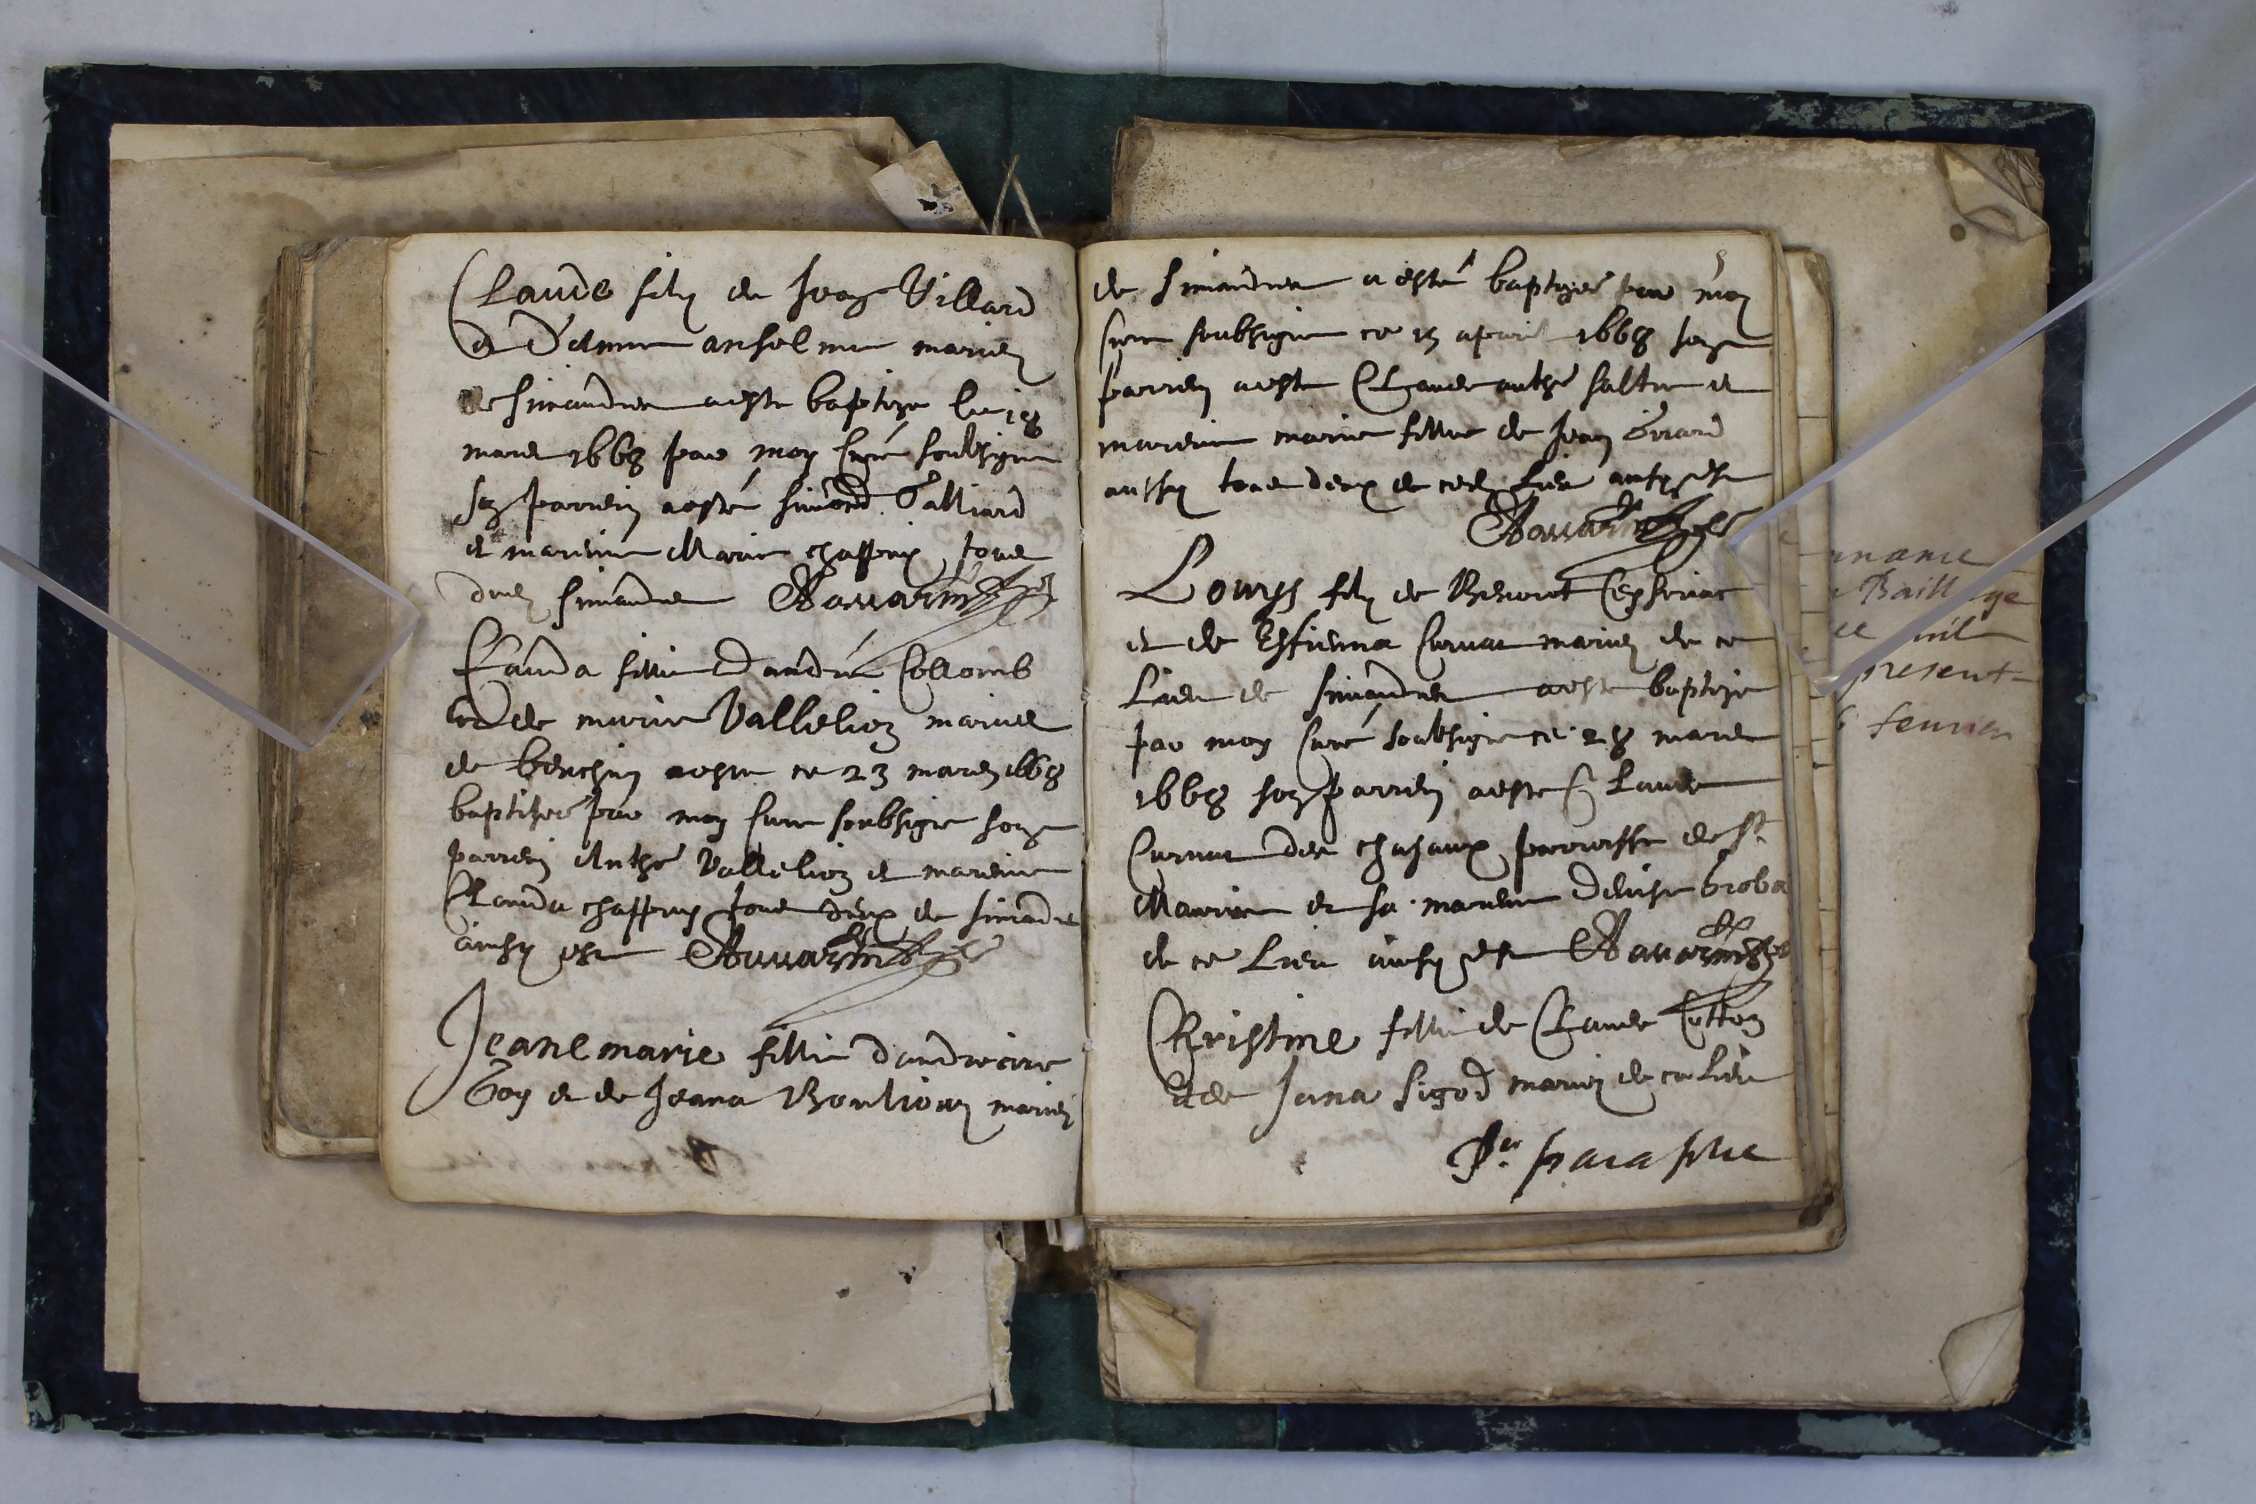 Claude filz de Jean Villard
et d'Anne anselme mariez
de simandre a esté baptizé le 18
mars 1668 par moy Curé soubsigne
son parrein a esté simond Galliard
et mareine Marie chappuy tous
deux simandre Navarin
Clauda fillie d'andré Collomb
et de marie Vallelion maries
de benchin a este ce 23 mars 1668
baptisée par moy Cure soubsigne son
parrein Anthe Vallelion et mareine
Clauda chappuy tous deux de simandre
ainsy est Navarin
Jeanemarie fillie d'andre
Goy et de Jeana Boulion mariez
de simandre a esté baptizée par moy
Cure soubsigne ce 15 apvril 1668 son
parrein a este Claude anthe saltre et
mareine marie fillie de Jean Girard
aussy tous deux de ced. Lieu ainsy est
Navarin
Louys filz de Benoit
et de Estienna Curvat mariez de ce
Lieu de simandre a este baptize
par moy Curé soubsigne ce 28 mars
1668 son parrein a este Claude
Curvat des chasaux parroisse de St
Maurice et sa mareine Denise
de ce Lieu ainsy est Navarin
Christine fillie de Claude Cotton
et de Jana sigod mariez de ce Lieu
Par paraphe
Baillage
present
fevrier